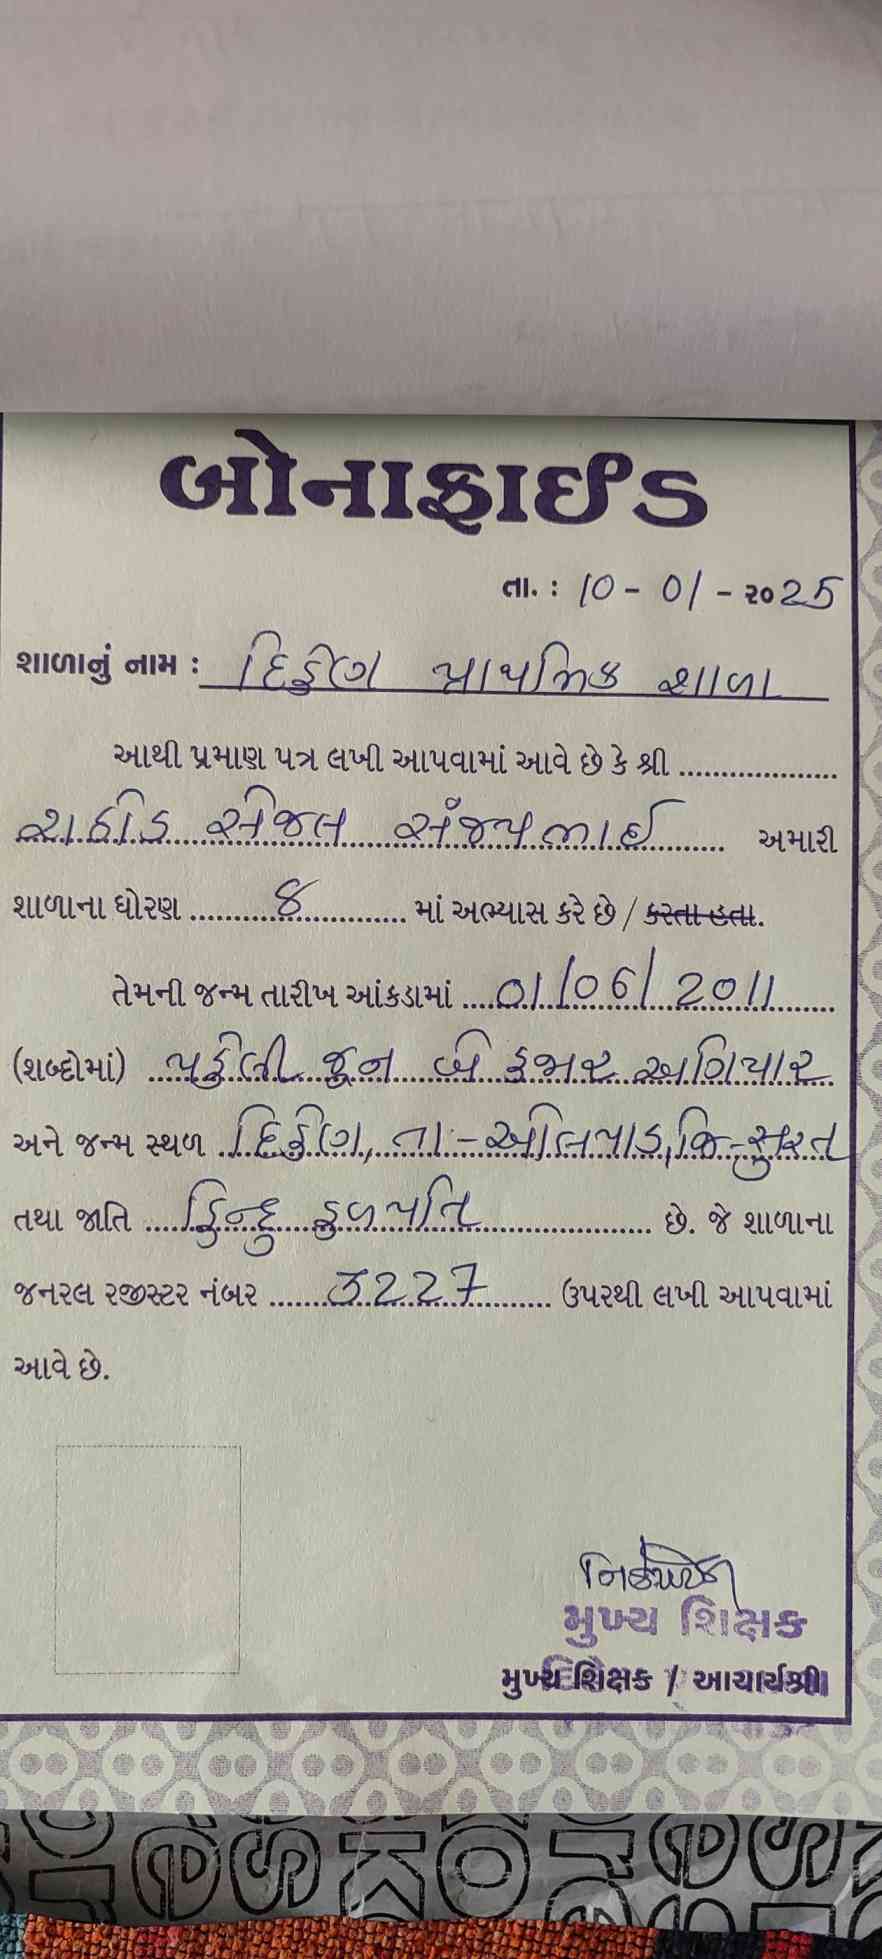 બોનાફાઈડ
તા. : 10 - 01 - ૨૦25
શાળાનું નામ : દિહેણ પ્રાથમિક શાળા
આથી પ્રમાણ પત્ર લખી આપવામાં આવે છે કે શ્રી
રાઠોડ સેજલ સંજયભાઈ અમારી
શાળાના ધોરણ 8 માં અભ્યાસ કરે છે / કરતા હતા.
તેમની જન્મ તારીખ આંકડામાં 01/06/2011
(શબ્દોમાં) પહેલી જૂન બે હજાર અગિયાર
અને જન્મ સ્થળ દિહેણ, તા:-ઓલપાડ, જિ-સુરત
તથા જાતિ હિન્દુ હળપતિ છે. જે શાળાના
જનરલ રજીસ્ટર નંબર 3227 ઉપરથી લખી આપવામાં
આવે છે.
મુખ્ય શિક્ષક
મુખ્ય શિક્ષક / આચાર્યશ્રી